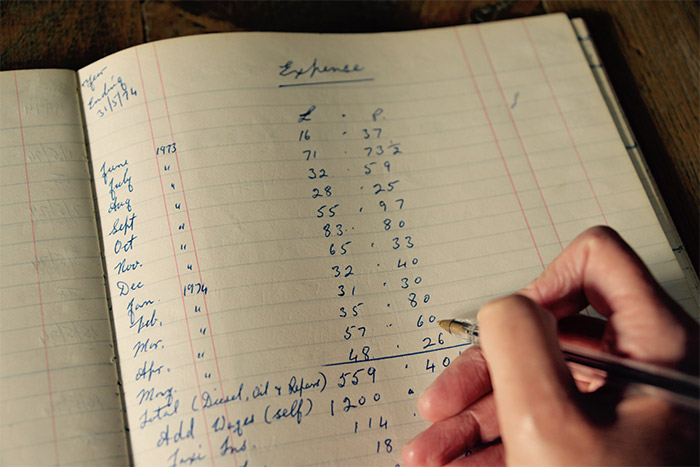 Year
Ending
31/5/74
Expense
£ . P.
June 1973 16 . 37
July " 71 . 73½
Aug " 32 . 59
Sept " 28 . 25
Oct " 55 . 97
Nov. " 83 . 80
Dec " 65 . 33
Jan. 1974 32 . 40
Feb. " 31 . 30
Mar. " 35 . 80
Apr. " 57 . 60
May " 48 . 26
Total (Diesel, Oil & Repairs) 559 . 40½
Add Wages (self) 1200 .
Taxi Ins. 114 .
18